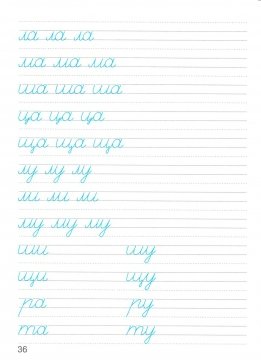 ла ла ла
ма ма ма
ша ша ша
ца ца ца
ща ща ща
лу лу лу
ми ми ми
му му му
ши шу
щи щу
ра ру
та ту
36